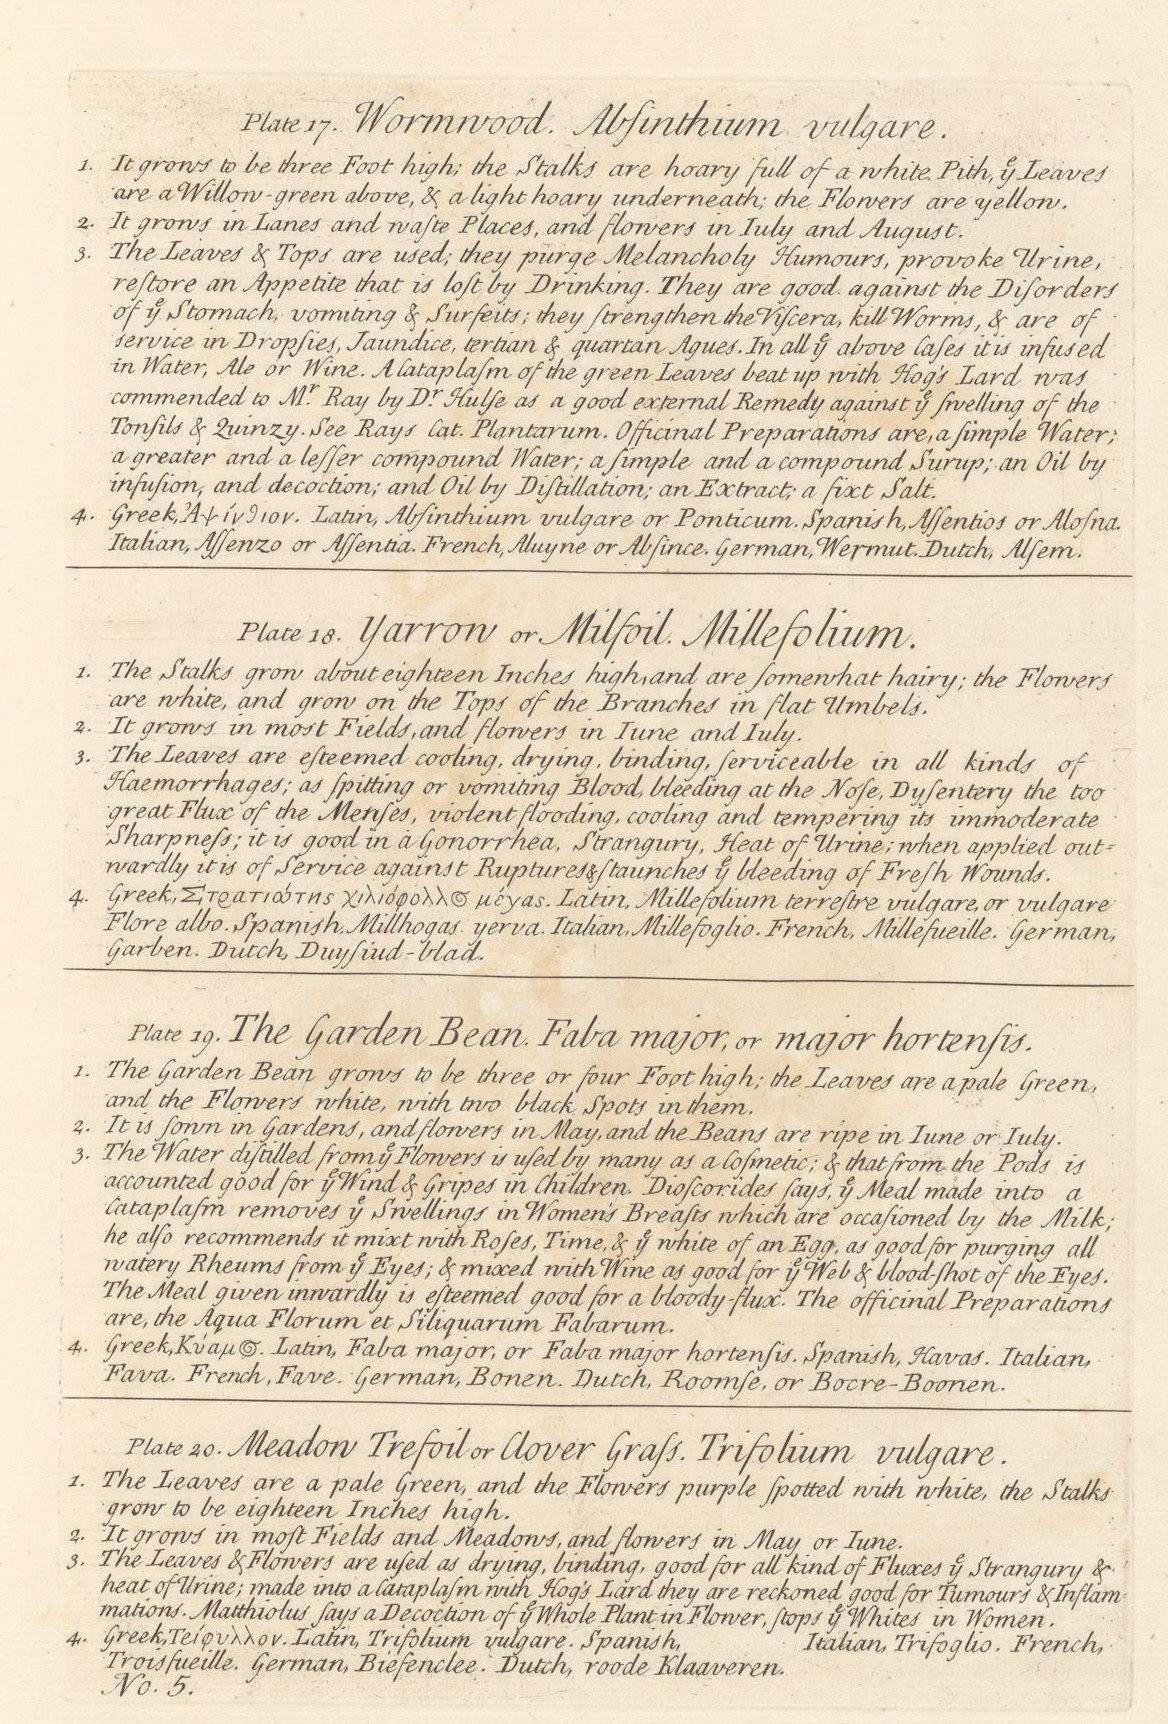 Plate 17. Wormwood. Abſinthium vulgare.
1. It grows to be three Foot high; the Stalks are hoary full of a white Pith, yͤ Leaves
are a Willow-green above, & a light hoary underneath; the Flowers are yellow.
2. It grows in Lanes and waſte Places, and flowers in Iuly and August.
3. The Leaves & Tops are used; they purge Melancholy Humours, provoke Urine,
reſtore an Appetite that is loſt by Drinking. They are good against the Diſorders
of yͤ Stomach, vomiting & Surfeits; they ſtrengthen the Viſcera, kill Worms, & are of
service in Dropſies, Jaundice, tertian & quartan Agues. In all yͤ above Caſes it is infused
in Water, Ale or Wine. A Cataplaſm of the green Leaves beat up with Hog's Lard was
commended to Mr. Ray by Dr. Hulſe as a good external Remedy against yͤ ſwelling of the
Tonſils & Quinzy. See Rays Cat. Plantarum. Officinal Preparations are, a ſimple Water;
a greater and a leſſer compound Water; a ſimple and a compound Surup; an Oil by
infuſion, and decoction; and Oil by Diſtillation; an Extract; a fixt Salt.
4. Greek, Ἀψίνθιον. Latin, Abſinthium vulgare or Ponticum. Spanish, Aſſentios or Aloſna.
Italian, Aſſenzo or Aſſentia. French, Aluyne or Abſince. German, Wermut. Dutch, Alſem.
Plate 18. Yarrow or Milfoil. Millefolium.
1. The Stalks grow about eighteen Inches high, and are ſomewhat hairy; the Flowers
are white, and grow on the Tops of the Branches in flat Umbels.
2. It grows in most Fields, and flowers in Iune and Iuly.
3. The Leaves are eſteemed cooling, drying, binding, ſerviceable in all kinds of
Haemorrhages; as ſpitting or vomiting Blood, bleeding at the Noſe, Dyſentery the too
great Flux of the Menſes, violent flooding, cooling and tempering its immoderate
Sharpneſs; it is good in a Gonorrhea, Strangury, Heat of Urine; when applied out=
wardly it is of Service against Ruptures & ſtaunches yͤ bleeding of Freſh Wounds.
4. Greek, Στρατιώτης χιλιόφολλος μέγας. Latin, Millefolium terreſtre vulgare, or vulgare
Flore albo. Spanish, Millhogas yerva. Italian, Millefoglio. French, Millefueille. German,
Garben. Dutch, Duyſiud-blad.
Plate 19. The Garden Bean. Faba major, or major hortenſis.
1. The Garden Bean grows to be three or four Foot high; the Leaves are a pale Green,
and the Flowers white, with two black Spots in them.
2. It is ſown in Gardens, and flowers in May, and the Beans are ripe in Iune or Iuly.
3. The Water diſtilled from yͤ Flowers is uſed by many as a Coſmetic; & that from the Pods is
accounted good for yͤ Wind & Gripes in Children. Dioſcorides ſays, yͤ Meal made into a
Cataplaſm removes yͤ Swellings in Women's Breaſts which are occaſioned by the Milk;
he alſo recommends it mixt with Roſes, Time, & yͤ white of an Egg, as good for purging all
watery Rheums from yͤ Eyes; & mixed with Wine as good for yͤ Web & blood-ſhot of the Eyes.
The Meal given inwardly is eſteemed good for a bloody-flux. The officinal Preparations
are, the Aqua Florum et Siliquarum Fabarum.
4. Greek, Κύαμος. Latin, Faba major, or Faba major hortenſis. Spanish, Havas. Italian,
Fava. French, Fave. German, Bonen. Dutch, Roomſe, or Bocre-Boonen.
Plate 20. Meadow Trefoil or Clover Graſs. Trifolium vulgare.
1. The Leaves are a pale Green, and the Flowers purple ſpotted with white, the Stalks
grow to be eighteen Inches high.
2. It grows in moſt Fields and Meadows, and flowers in May or Iune.
3. The Leaves & Flowers are uſed as drying, binding, good for all kind of Fluxes yͤ Strangury &
heat of Urine; made into a Cataplaſm with Hog's Lard they are reckoned good for Tumours & Inflam-
mations. Matthiolus ſays a Decoction of yͤ Whole Plant in Flower, ſtops yͤ Whites in Women.
4. Greek, Τείφυλλον. Latin, Trifolium vulgare. Spanish, Italian, Trifoglio. French,
Troisfueille. German, Biefenclee. Dutch, roode Klaaveren.
No. 5.